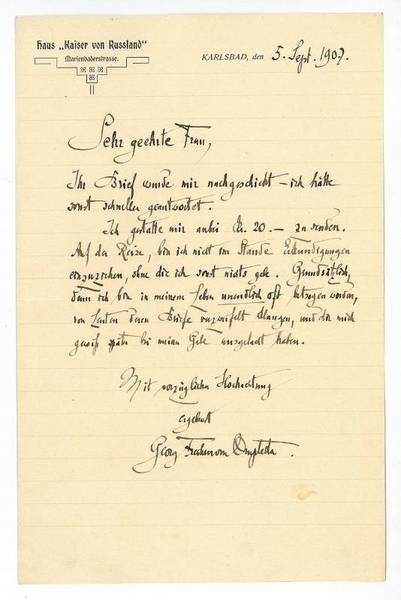 Haus „Kaiser von Russland"
Marienbaderstrasse.
KARLSBAD, den 5. Sept. 1907.
Sehr geehrte Frau,
Ihr Brief wurde mir nachgeschickt – ich hätte
sonst schneller geantwortet.
Ich gestatte mir anbei Kr. 20.– zu senden.
Auf der Reise, bin ich nicht im Stande Erkundigungen
einzuziehen, ohne die ich sonst nichts gebe. Grundsätzlich,
denn ich bin in meinem Leben unendlich oft betrogen worden,
von Leuten deren Briefe verzweifelt klangen, und die mich
gewiß später bei meiner Gabe ausgelacht haben.
Mit vorzüglicher Hochachtung
ergebenst
Georg Freiherr von Ompteda.